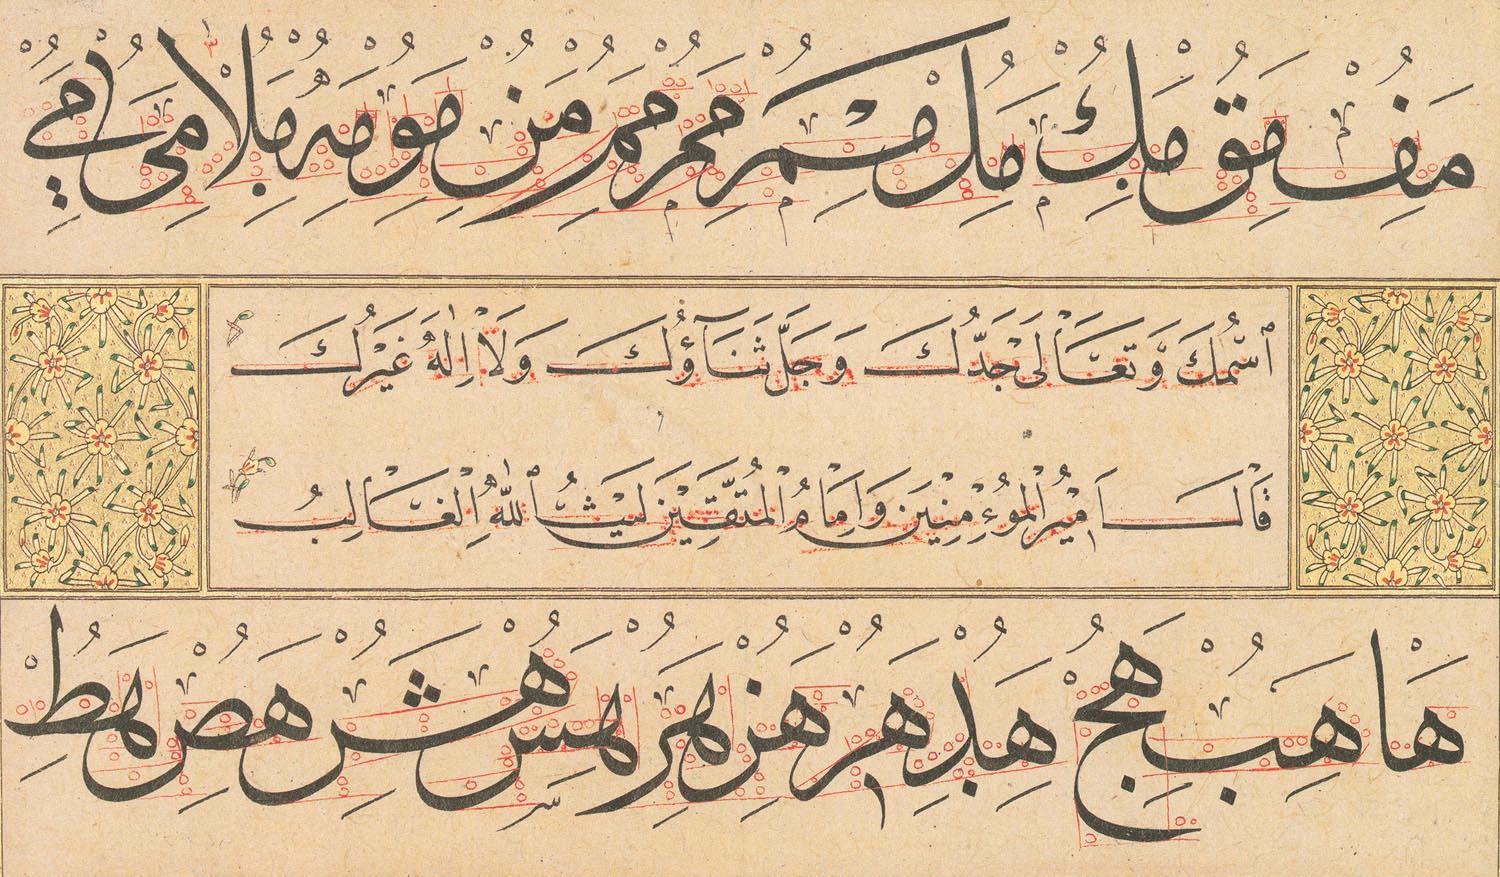 مف مق مك مل مم مم من مو مه ملا مي مي
ٱسْمُكَ وَتَعَالَى جَدُّكَ وَجَلَّ ثَنَآؤُكَ وَلَا اِلٰهَ غَيْرُكَ
قَالَ اَمِيْرُ الْمُوءْمِنِيْنَ وَاِمَامُ الْمُتَّقِيْنَ لَيْثُ ٱللّٰهِ الْغَالِبُ
ها هب هج هد هر هز هر هس هش هص هط